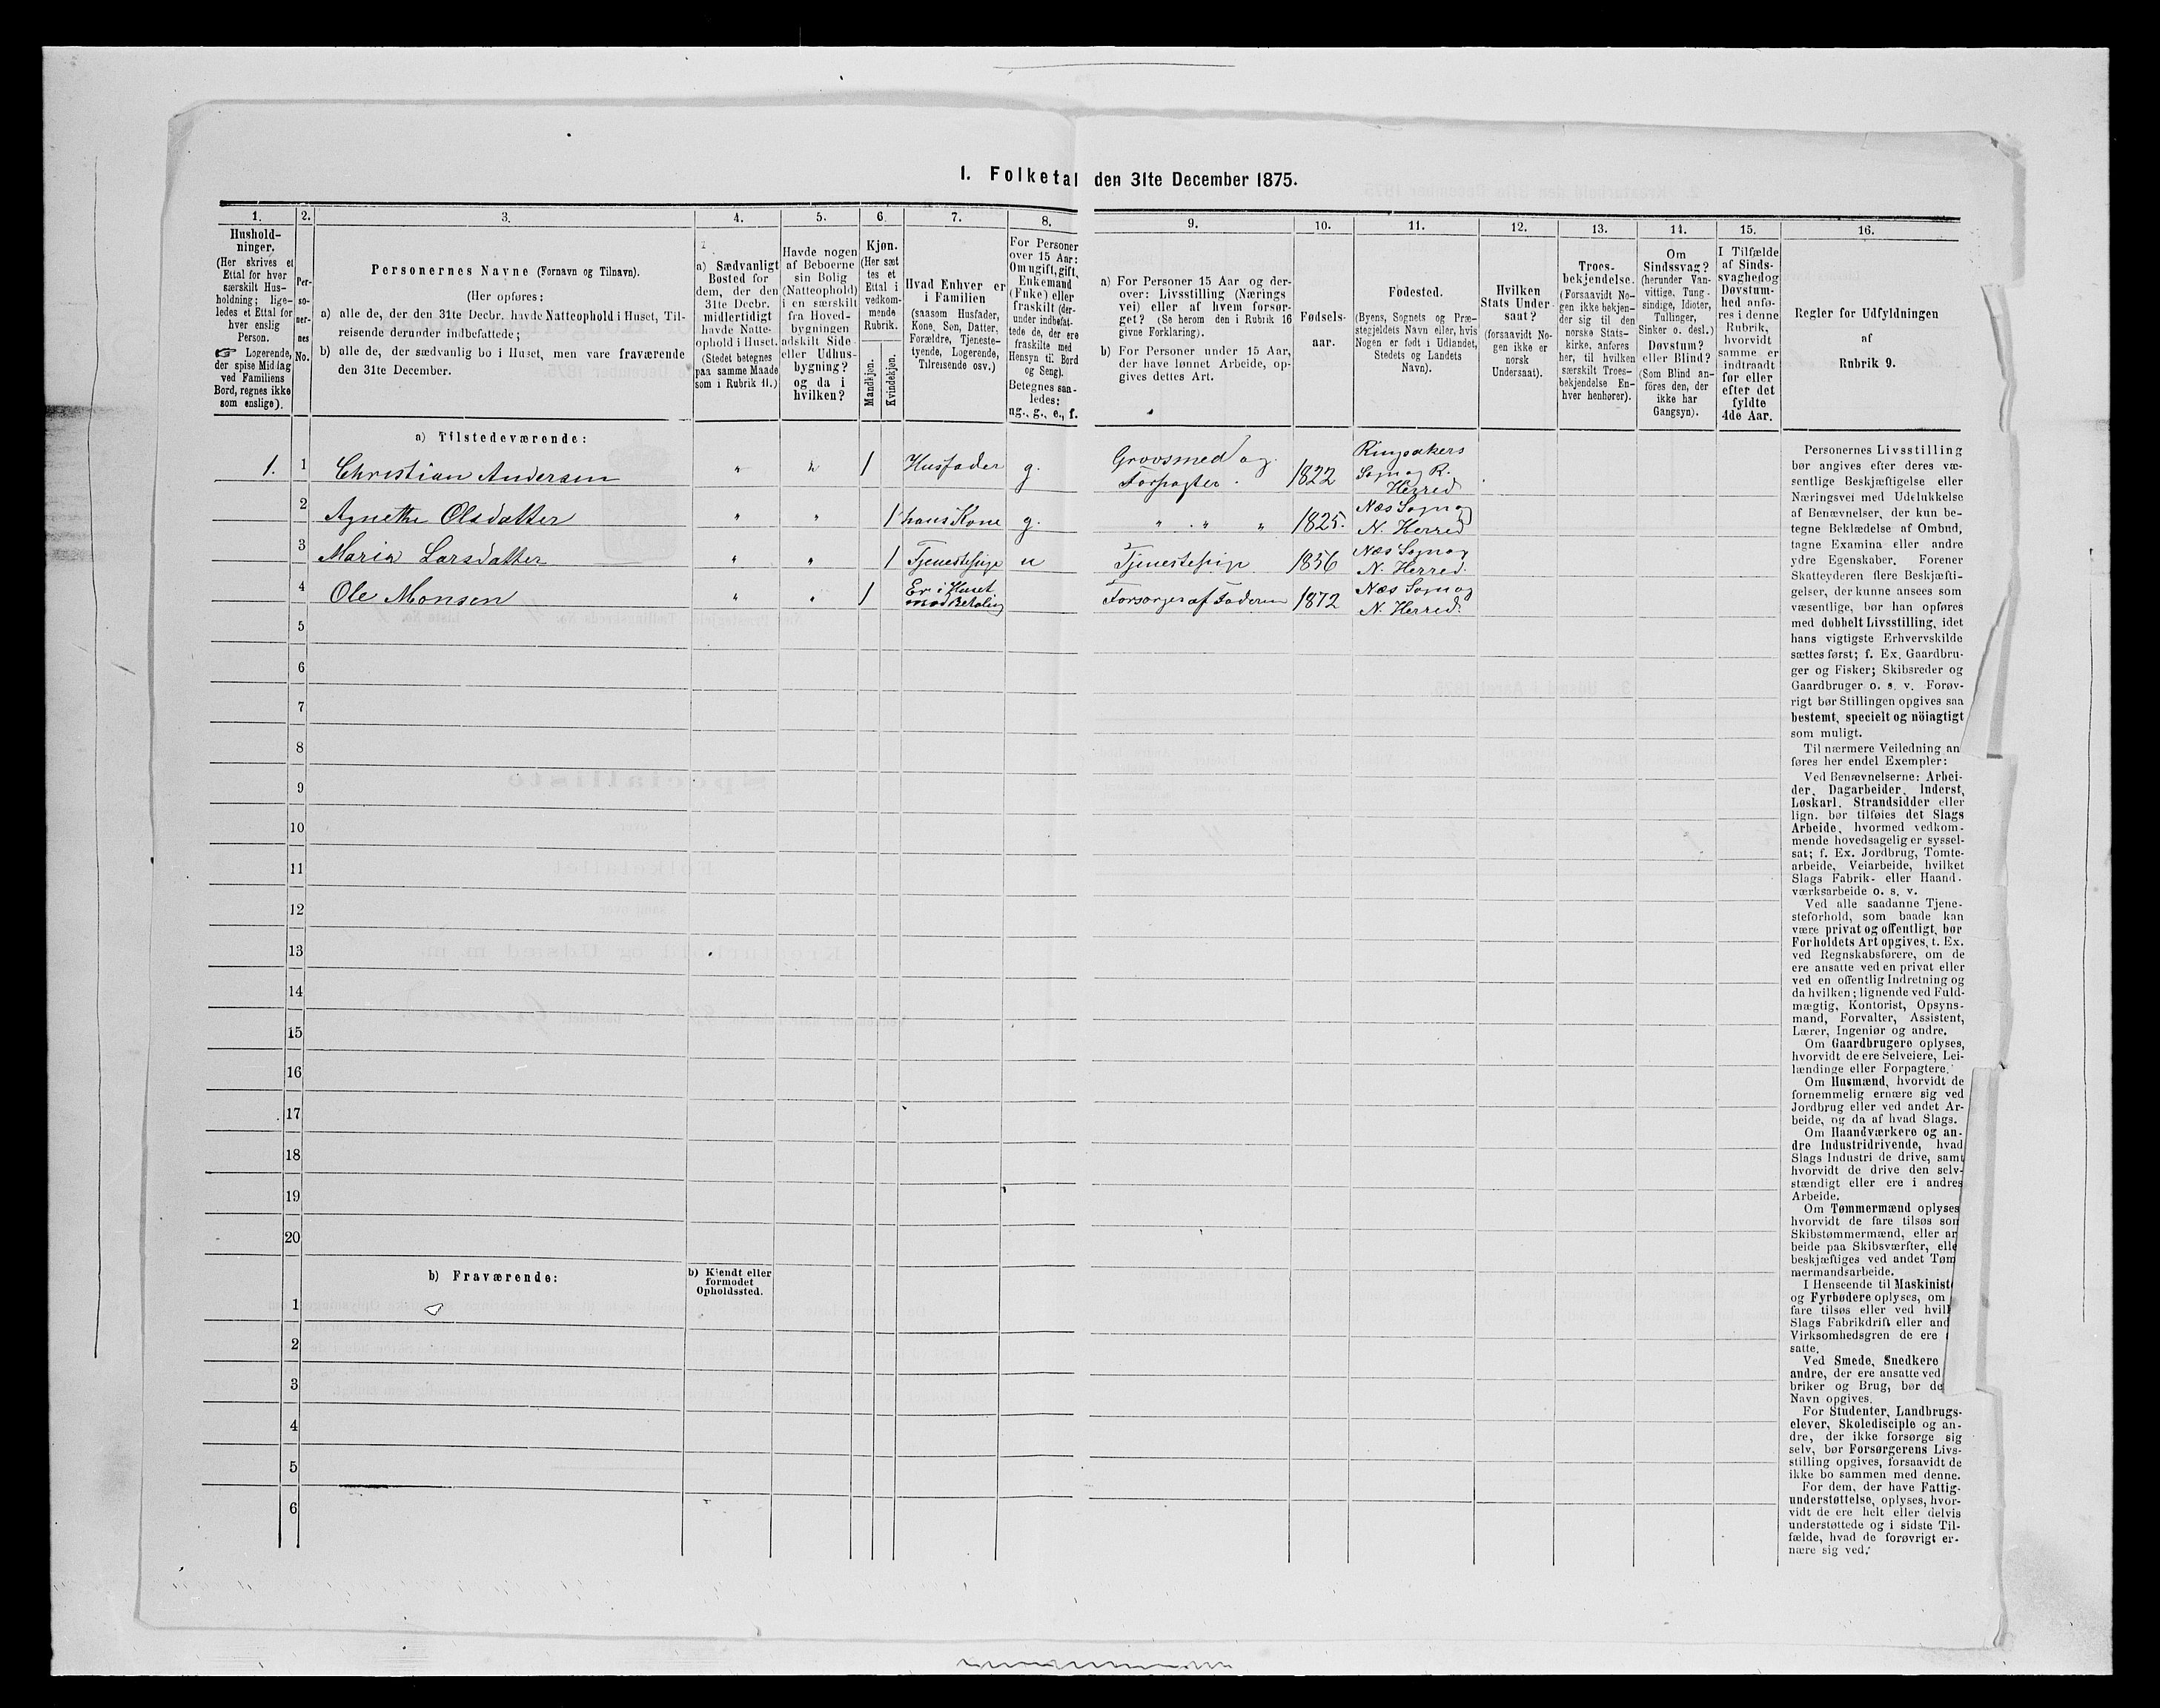 1. Folketal den 31te December 1875.
1.
2.
3.
4.
5.
6.
7.
8.
9.
10.
11.
12.
13.
14.
15.
16.
Hushold-
ninger.
(Her skrives et
Ettal for hver
særskilt Hus-
holdning; lige-
ledes et Ettal for
hver enslig
Person.
☞ Logerende,
der spise Middag
ved Familiens
Bord, regnes ikke
som enslige).
Per-
so-
ner-
nes
No.
Personernes Navne (Fornavn og Tilnavn).
(Her opføres:
a) alle de, der den 31te Decbr. havde Natteophold i Huset, Til-
reisende derunder indbefattede;
b) alle de, der sædvanlig bo i Huset, men vare fraværende
den 31te December.
a) Sædvanligt
Bosted for
dem, der den
31te Decbr.
midlertidigt
havde Natte-
ophold i Huset.
(Stedet betegnes
paa samme Maade
som i Rubrik 11.)
Havde nogen
af Beboerne
sin Bolig
(Natteophold)
i en særskilt
fra Hoved-
bygningen
adskilt Side
eller Udhus-
bygning?
og da i
hvilken?
Kjøn.
(Her sæt
tes et
Ettal i
vedkom-
mende
Rubrik.
Mandkjøn.
Kvindekjøn.
Hvad Enhver er
i Familien
(saasom Husfader,
Kone, Søn, Datter,
Forældre, Tjeneste-
tyende, Logerende,
Tilreisende osv.)
For Personer
over 15 Aar:
Om ugift, gift,
Enkemand
(Enke) eller
fraskilt (der-
under indbefat-
tede de, der ere
fraskilte med
Hensyn til Bord
og Seng).
Betegnes saa-
ledes:
ug., g., e., f.
a) For Personer 15 Aar og der-
over: Livsstilling (Nærings
vei) eller af hvem forsør-
get? (Se herom den i Rubrik 16
givne Forklaring).
b) For Personer under 15 Aar,
der have lønnet Arbeide, op-
gives dettes Art.
Fødsels-
aar.
Fødested.
(Byens, Sognets og Præ-
stegjeldets Navn eller, hvis
Nogen er født i Udlandet,
Stedets og Landets
Navn).
Hvilken
Stats Under-
saat?
(forsaavidt No-
gen ikke er
norsk
Undersaat).
Troes-
bekjendelse.
(Forsaavidt No-
gen ikke bekjen-
der sig til den
norske Stats-
kirke, anføres
her, til hvilken
særskilt Troes-
bekjendelse En-
hver henhører).
Om
Sindssvag?
(herunder Van-
vittige, Tung-
sindige, Idioter,
Tullinger,
Sinker o. desl.)
Døvstum?
eller Blind?
(Som Blind an-
føres den, der
ikke har
Gangsyn).
I Tilfælde
af Sinds-
svaghed og
Døvstum-
hed anfø-
res i denne
Rubrik,
hvorvidt
samme er
indtraadt
før eller
efter det
fyldte
4de Aar.
Regler for Udfyldningen
af
Rubrik 9.
a) Tilstedeværende:
1. 1 Christian Andersen " " 1 Husfader g. Grovsmed og Forpagter. 1822 Ringsakers Sogn og R. Herred
2 Agnethe Olsdatter " " 1 hans Kone g. " " " 1825. Næs Sogn og N. Herred
3 Maria Larsdatter " " 1 Tjenestepige u Tjenestepige 1856 Næs Sogn og N. Herred.
4 Ole Monsen " " 1 Er i Huset mod Betaling Forsørges af Faderen 1872 Næs Sogn og N. Herred.
5
6
7
8
9
10
11
12
13
14
15
16
17
18
19
20
b) Fraværende:
b) Kjendt eller
formodet
Opholdssted.
1
2
3
4
5
6
Personernes Livsstilling
bør angives efter deres væ-
sentlige Beskjæftigelse eller
Næringsvei med Udelukkelse
af Benævnelser, der kun be-
tegne Beklædelse af Ombud,
tagne Examina eller andre
ydre Egenskaber. Forener
Skatteyderen flere Beskjæfti-
gelser, der kunne ansees som
væsentlige, bør han opføres
med dobbelt Livsstilling, idet
hans vigtigste Erhvervskilde
sættes først; f. Ex. Gaardbru-
ger og Fisker; Skibsreder og
Gaardbruger o. s. v. Forøv-
rigt bør Stillingen opgives saa
bestemt, specielt og nöiagtigt
som muligt.
Til nærmere Veiledning an
føres her endel Exempler:
Ved Benævnelserne: Arbei-
der, Dagarbeider, Inderst,
Løskarl, Strandsidder eller
lign. bør tilføies det Slags
Arbeide, hvormed vedkom-
mende hovedsagelig er syssel-
sat; f. Ex. Jordbrug, Tomte-
arbeide, Veiarbeide, hvilket
Slags Fabrik- eller Haand-
værksarbeide o. s. v.
Ved alle saadanne Tjene-
steforhold, som baade kan
være privat og offentligt, bør
Forholdets Art opgives, t. Ex.
ved Regnskabsførere, om de
ere ansatte ved en privat eller
ved en offentlig Indretning og
da hvilken; lignende ved Fuld-
mægtig, Kontorist, Opsyns-
mand, Forvalter, Assistent,
Lærer, Ingeniør og andre.
Om Gaardbrugere oplyses,
hvorvidt de ere Selveiere, Lei-
lændinge eller Forpagtere.
Om Husmænd, hvorvidt de
fornemmelig ernære sig ved
Jordbrug eller ved andet Ar-
beide, og da af hvad Slags.
Om Haandværkere og an-
dre Industridrivende, hvad
Slags Industri de drive, samt
hvorvidt de drive den selv-
stændigt eller ere i andres
Arbeide.
Om Tømmermænd oplyses
hvorvidt de fare tilsøs som
Skibstømmermænd, eller ar
beide paa Skibsværfter, elle
beskjæftiges ved andet Tøm
mermandsarbeide.
I Henseende til Maskinist
og Fyrbødere oplyses, om
fare tilsøs eller ved hvil
Slags Fabrikdrift eller and
Virksomhedsgren de ere
satte.
Ved Smede, Snedkere
andre, der ere ansatte ved
briker og Brug, bør de
Navn opgives.
For Studenter, Landbrugs-
elever, Skoledisciple og an-
dre, der ikke forsørge sig
selv, bør Forsørgerens Livs-
stilling opgives, forsaavidt de
ikke bo sammen med denne.
For dem, der have Fattig-
understøttelse, oplyses, hvor-
vidt de ere helt eller delvis
understøttede og i sidste Til-
fælde, hvad de forøvrigt er-
nære sig ved.